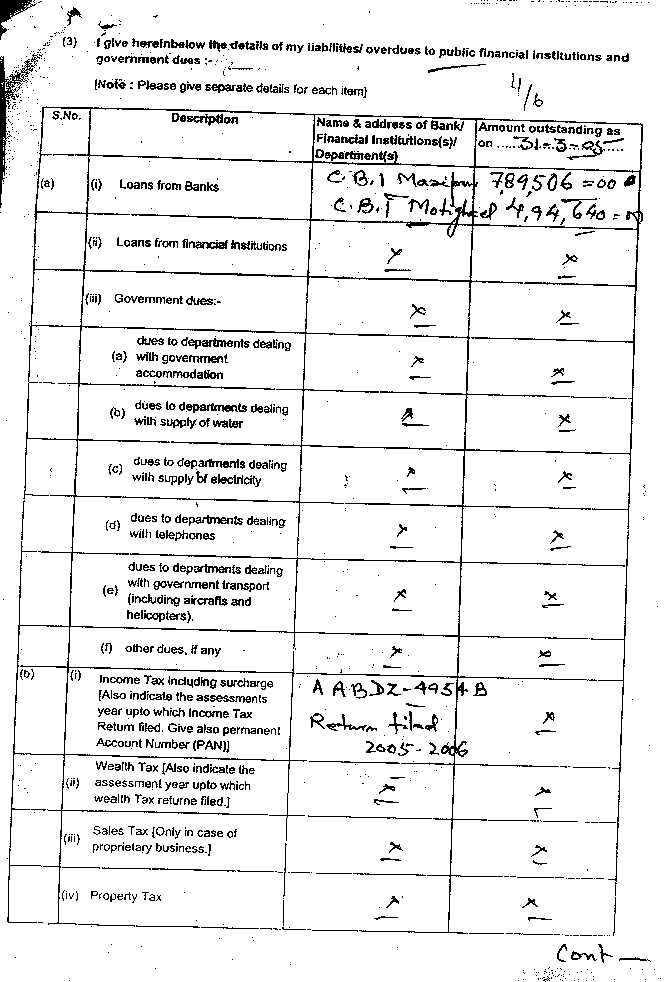 (3) I give hereinbelow the details of my liabilities/ overdues to public financial institutions and
government dues :-
[Note : Please give separate details for each item]
4/6
S.No. Description Name & address of Bank/ Amount outstanding as
Financial Institutions(s)/ on ..... 31-3-05 .....
Department(s)
(a) (i) Loans from Banks C.B.I 789,506=00
C.B.I 4,94,640=
(ii) Loans from financial institutions x x
(iii) Government dues:- x x
dues to departments dealing
(a) with government x x
accommodation
(b) dues to departments dealing x
with supply of water
(c) dues to departments dealing x x
with supply of electricity
(d) dues to departments dealing x x
with telephones
dues to departments dealing
(e) with government transport x x
(including aircrafts and
helicopters).
(f) other dues, if any x x
(b) (i) Income Tax including surcharge AABDZ-4954B
[Also indicate the assessments
year upto which Income Tax Return filed x
Return filed. Give also permanent
Account Number (PAN)] 2005-2006
Wealth Tax [Also indicate the
(ii) assessment year upto which x x
wealth Tax returne filed.]
(iii) Sales Tax [Only in case of x x
proprietary business.]
(iv) Property Tax x x
Cont —